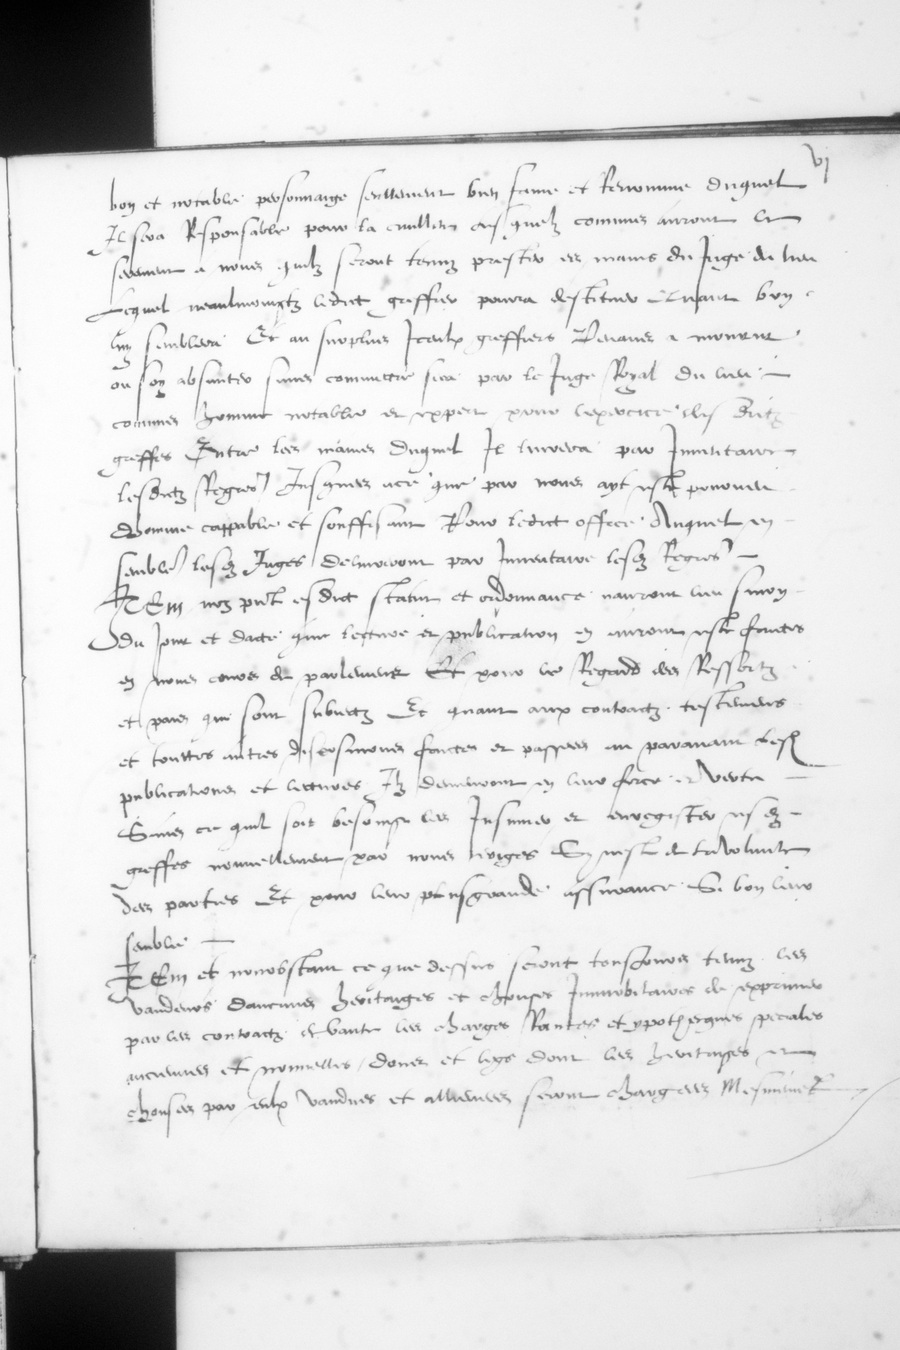 vj
bon et notable personnaige seullement bien fame et Renomme duquel
Il sera Responsable pour la commis aurout et
serement a nous quilz seront tenuz prester es mains du Juge du lieu
Lequel neaulmoingtz ledict greffier pourra destituer quant bon
luy semblera Et au surplus Iceulx greffiers Venans a mourir
ou soy absenter sera commectre sera par le Juge Royal du lieu
commis homme notable et expert pour lexercice desdictz
greffes Entre les mains duquel Il livrera par Inventaire
lesdictz Regrez Jusques ace que par nous ayt este pourveu
dhomme cappable et souffisant Pour ledict office Auquel en
semble lesdz Juges delivreront par Inventaire lesdz Regrez
ITEM noz esdict statut et ordonnance nauront lieu sinon
du Jour et dacte que lecture et publication en auront este faictes
en nous cours de parlement Et pour le Regard des Ressortz
et pays qui sont subiectz Et quant aux contractz testemens
et touttes autres dispositions faictes et passees au paravant lesd
publications et lectures Ilz demeuront en leur force et Vertu
Sans ce quil soit besoing les Insinuer et enregister esdz
greffes nouvellement par nous eriges Sy nest de la volunte
des parties Et pour leur plus grande asseurance Si bon leur
semble
ITEM et nonobstant ce que dessus seront tousjours tenuz les
vandeurs daucunes heritaiges et chouses Immobiliaires de exprimer
par les contractz de vante les charges Rantes et ypotheques speciales
anciennes et nouvelles, dones et legs dont les heritaiges et
chouses par eulx vandues et alienees seront chargees Mesmement